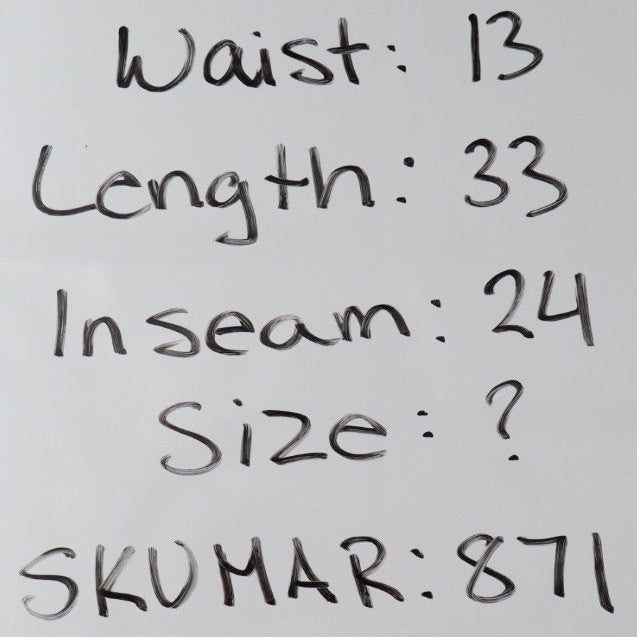 Waist: 13
Length: 33
Inseam: 24
Size: ?
SKUMAR: 871